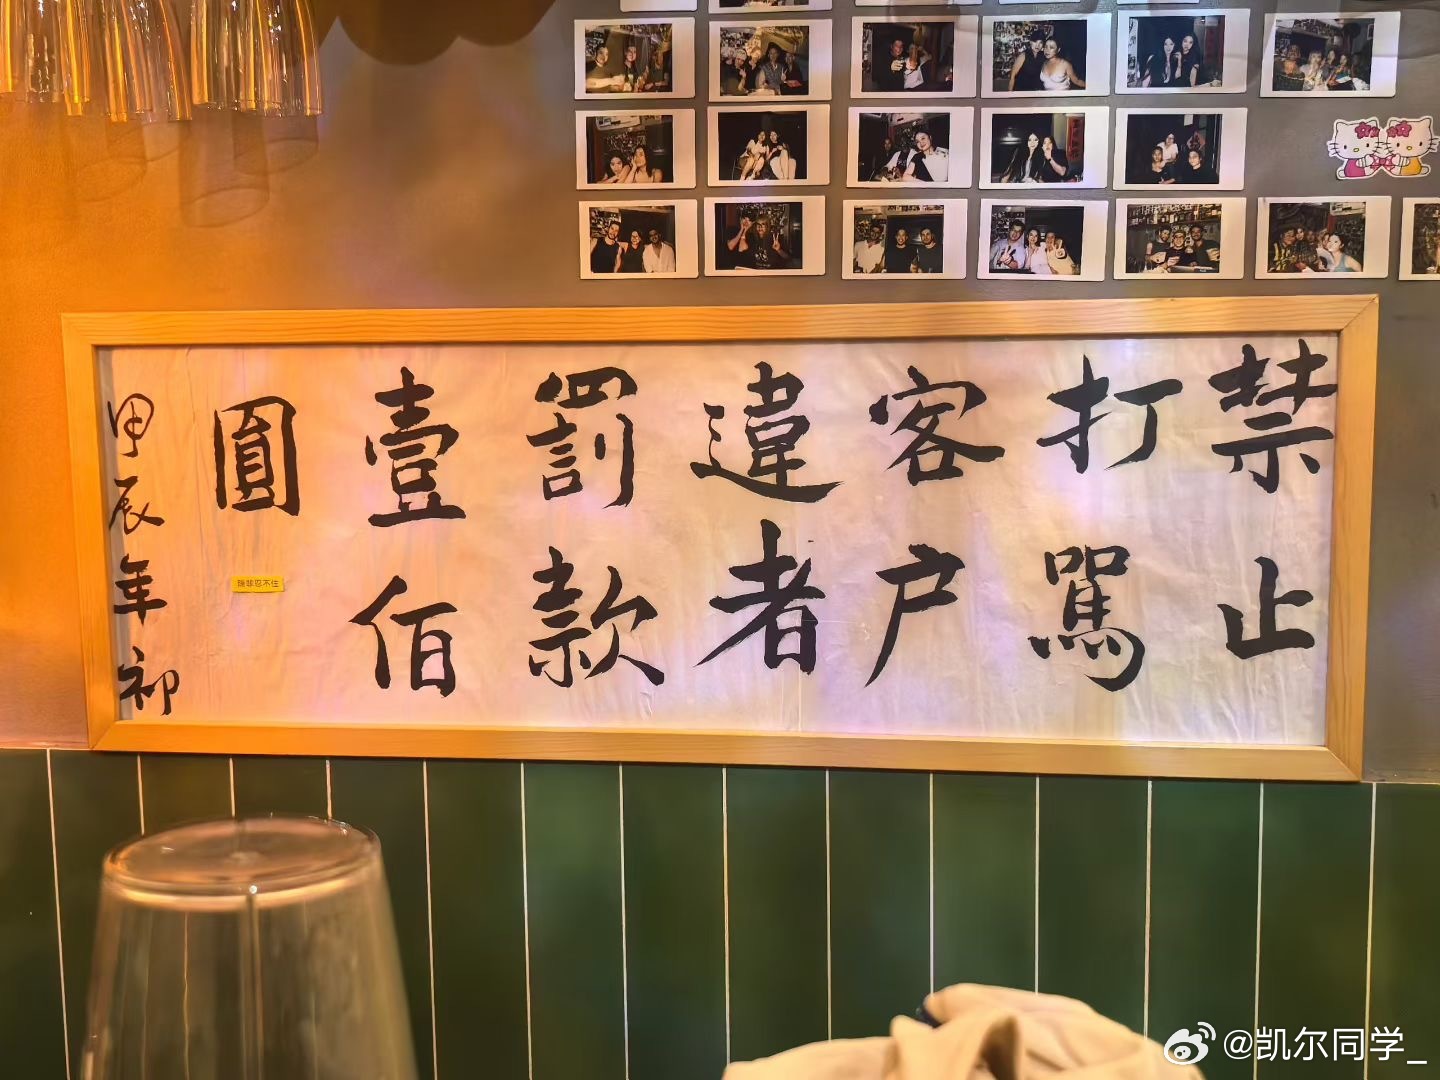 禁止
打駡
客户
違者
罰款
壹佰
圓
甲辰年祁
@凯尔同学_